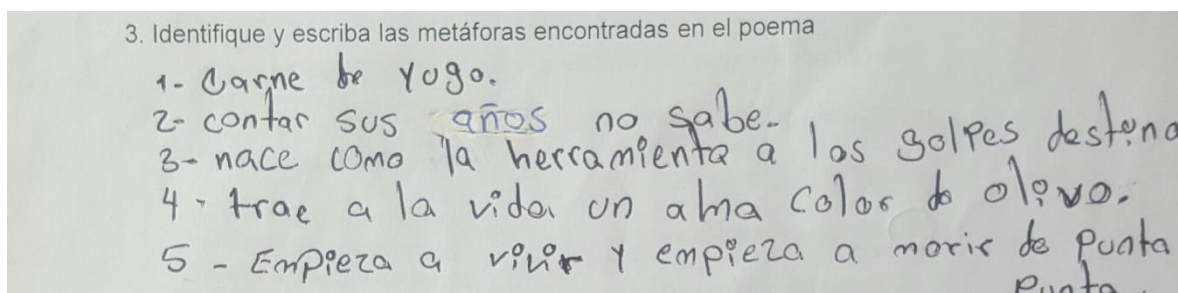 3. Identifique y escriba las metáforas encontradas en el poema
1- Carne de Yugo.
2- contar sus años no sabe.
3- nace como la herramienta a los golpes destina
4- trae a la vida un alma color de olivo.
5 - Empieza a vivir y empieza a morir de punta
punta.